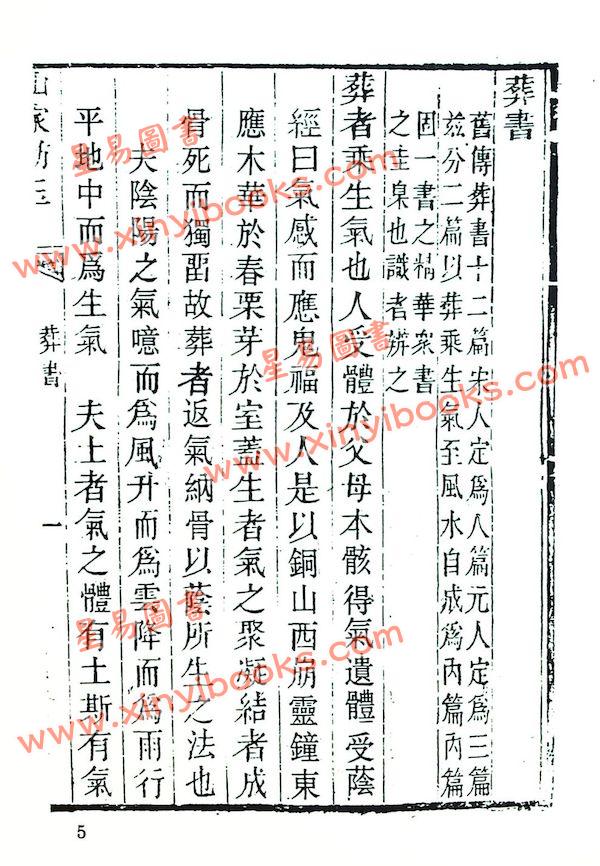 葬書
舊傳葬書十二篇宋人定爲八篇元人定爲三篇
玆分二篇以葬乘生氣至風水自成爲內篇內篇
固一書之精華衆書
之圭臬也識者辨之
葬者乘生氣也人受體於父母本骸得氣遺體受蔭
經曰氣感而應鬼福及人是以銅山西崩靈鐘東
應木華於春栗芽於室蓋生者氣之聚凝結者成
骨死而獨畱故葬者返氣納骨以蔭所生之法也
夫陰陽之氣噫而爲風升而爲雲降而爲雨行
平地中而爲生氣 夫土者氣之體有土斯有氣
葬書
一
5
星易圖書
www.xinyibooks.com
星易圖書
www.xinyibooks.com
星易圖書
www.xinyibooks.com